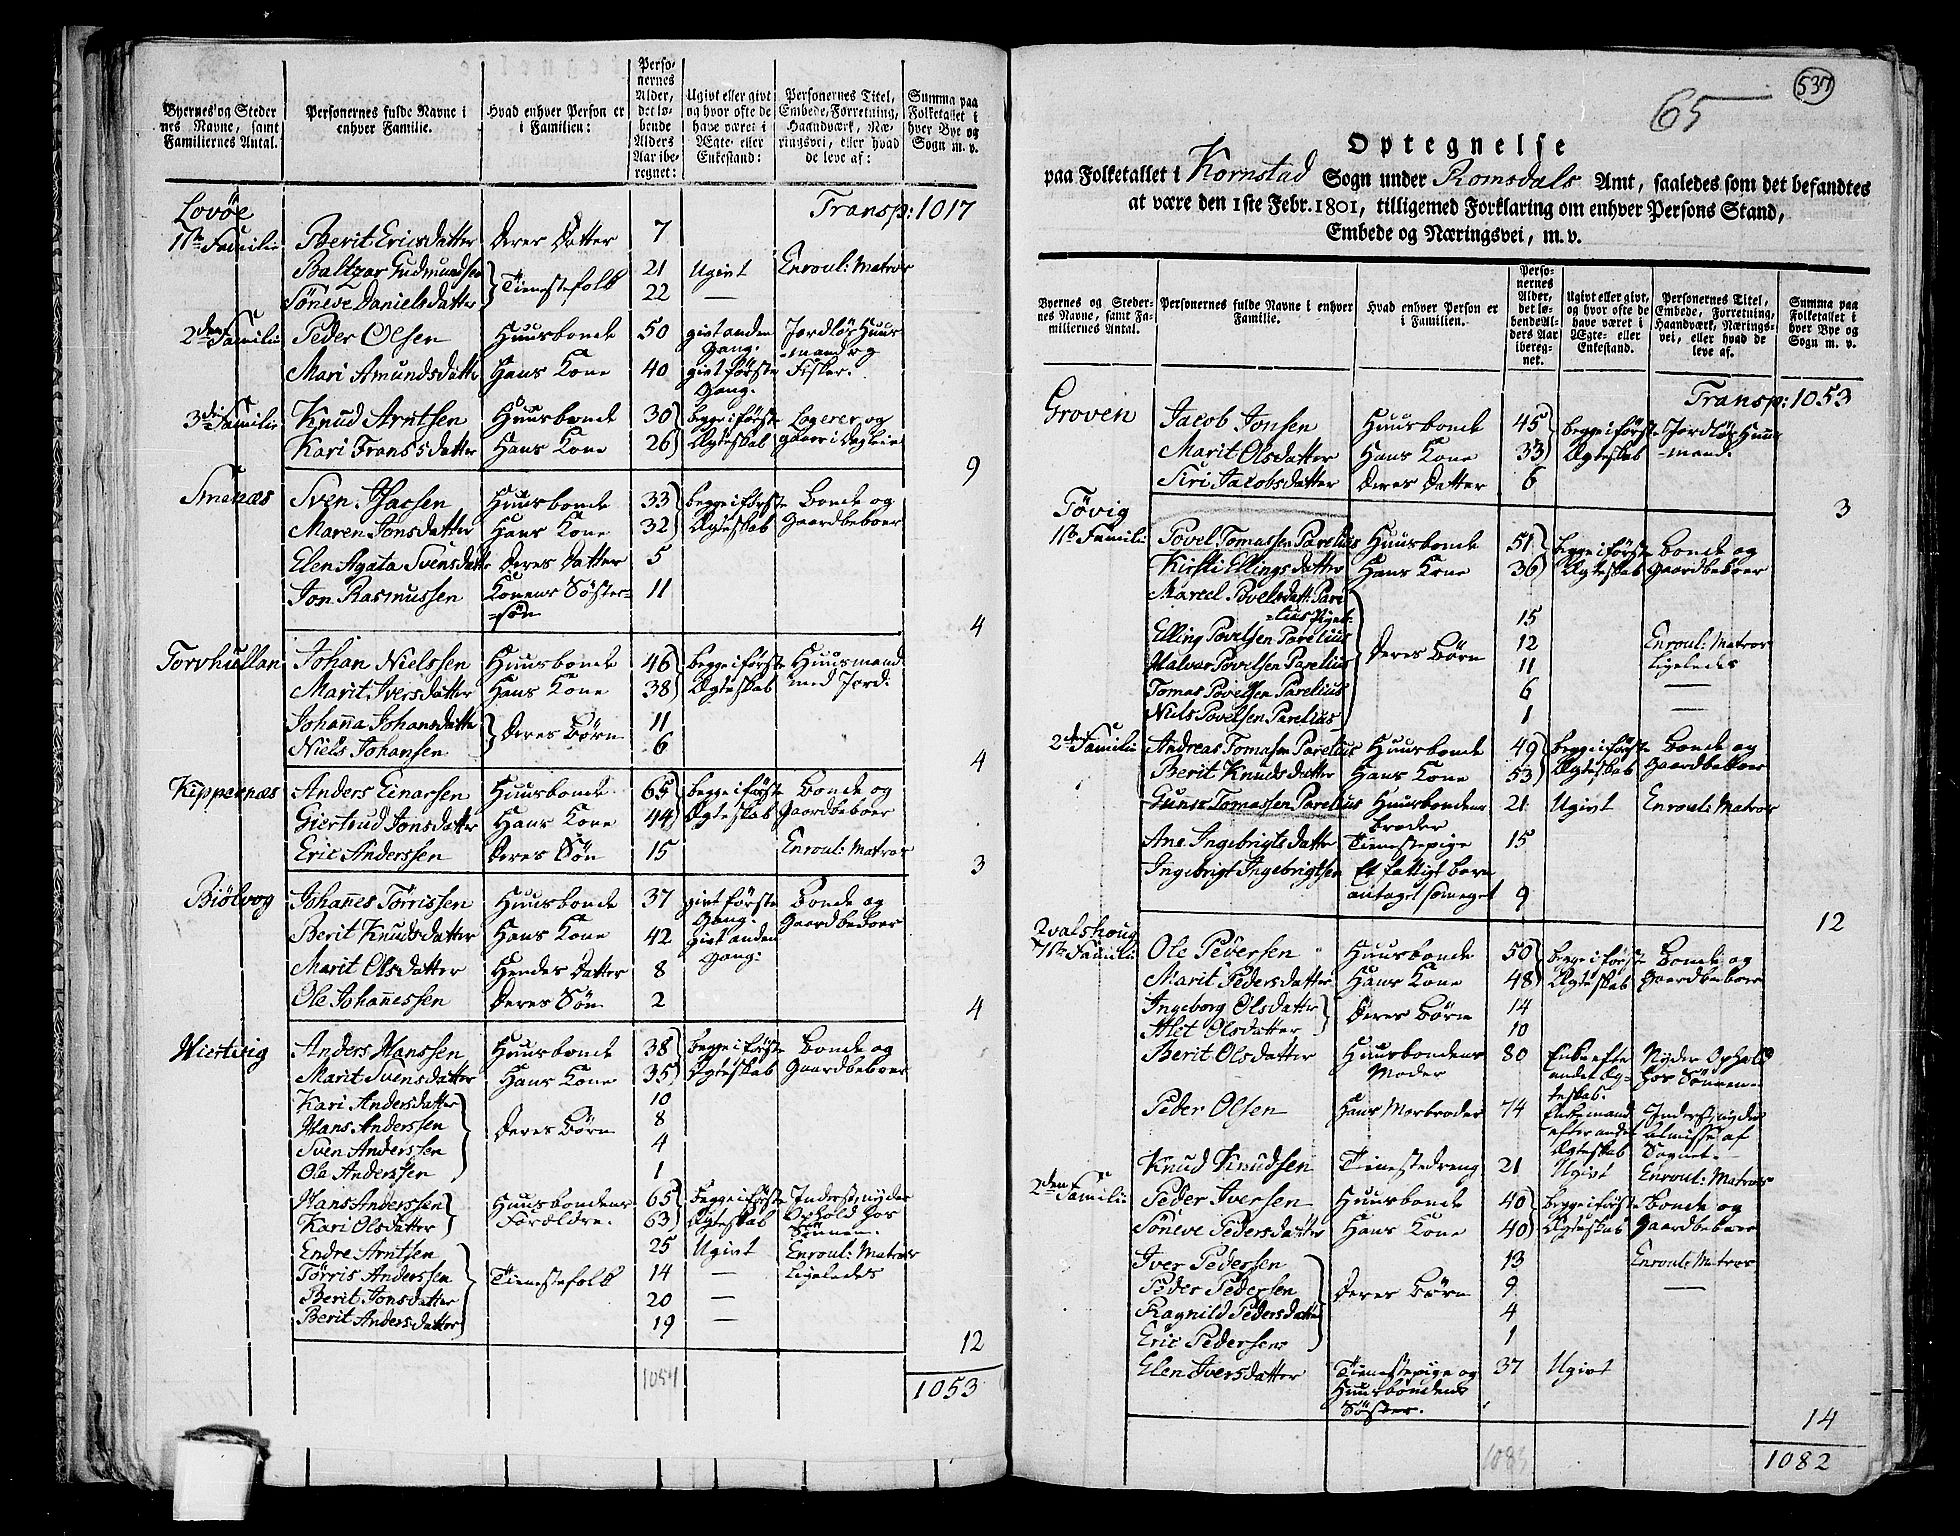 Byernes og Steder
nes Navne, samt
Familiernes Antal.
Personernes fulde Navne i
enhver Familie.
Hvad enhver Person er
i Familien:
Perso-
nernes
Alder,
det lø-
bende
Alders
Aar ibe-
regnet:
Ugivt eller givt
og hvor ofte de
have været i
Ægte- eller
Enkestand:
Personernes Titel,
Embede, Forretning,
Haandværk, Næ-
ringsvei, eller hvad
de leve af:
Summa paa
Folketallet i
hver Bye og
Sogn m. v.
Transp: 1017
Lovöe
1te Familie Berit Ericsdatter Deres Datter 7
Baltzar Gudmundsen } Tienestefolk 21 Ugivt Enroul: Matros
Söneve Danielsdatter 22 —
2den Familie Peder Olsen Huusbonde 50 givt anden Gang. Jordlös Huus-
mand og
Mari Amundsdatter Hans Kone 40 givt förste Gang. Fisker.
3die Familie Knud Arntsen Huusbonde 30 } begge i förste Logerer og
Kari Frans'sdatter Hans Kone 26 Ægteskab gaaer i Dagleie
9
Smenæs Sven Isacsen Huusbonde 33 } begge i förste Bonde og
Maren Jonsdatter Hans Kone 32 Ægteskab Gaardbeboer
Elen Agata Svensdatter Deres Datter 5
Jon Rasmussen Konens Söster- 11
sön
4
Torvhullan Johan Nielssen Huusbonde 46 } begge i förste Huusmand
Marit Iversdatter Hans Kone 38 Ægteskab med Jord.
Johanna Johansdatter } Deres Börn 11
Niels Johansen 6
4
Kippernæs Anders Einarsen Huusbonde 65 } begge i förste Bonde og
Giertrud Jonsdatter Hans Kone 44 Ægteskab Gaardbeboer
Eric Anderssen Deres Sön 15 Enroul: Matros
3
Biölvog Johannes Törrissen Huusbonde 37 givt förste Gang. Bonde og
Berit Knudsdatter Hans Kone 42 givt anden Gang: Gaardbeboer
Marit Olsdatter Hendes Datter 8
Ole Johannessen Deres Sön 2
4
Hiertvig Anders Hanssen Huusbonde 38 } begge i förste Bonde og
Marit Svensdatter Hans Kone 35 Ægteskab Gaardbeboer
Kari Andersdatter } Deres Börn 10
Hans Anderssen 8
Sven Anderssen 4
Ole Anderssen 1
Hans Anderssen } Huusbondens 65 } begge i förste Inderst, nyder
Kari Olsdatter Forældre. 63 Ægteskab Ophold hos Sönnen.
Endre Arntsen } Tienestefolk 25 Ugivt Enroul: Matros
Törris Anderssen 14 — Ligeledes
Berit Jonsdatter 20 —
Berit Andersdatter 19 —
12
1054 1053
537
65
Optegnelse
paa Folketallet i Kornstad Sogn under Romsdals Amt, saaledes som det befandtes
at være den 1ste Febr. 1801, tilligemed Forklaring om enhver Persons Stand,
Embede og Næringsvei, m. v.
Byernes og Steder-
nes Navne, samt Fa-
miliernes Antal.
Personernes fulde Navne i enhver
Familie.
Hvad enhver Person er
i Familien.
Perso-
nernes
Alder,
det lø-
bende Al-
ders Aar
ibereg-
net.
Ugivt eller givt,
og hvor ofte de
have været i
Ægte- eller
Enkestand.
Personernes Titel,
Embede, Forretning,
Haandværk, Nærings-
vei, eller hvad de
leve af.
Summa paa
Folketallet i
hver Bye og
Sogn m. v.
Transp: 1053
Groven Jacob Jonsen Huusbonde 45 } begge i förste Jordlös Huus-
Marit Olsdatter Hans Kone 33 Ægteskab mand.
Siri Jacobsdatter Deres Datter 6
3
Tövig
1te Familie Povel Tomassen Parelius Huusbonde 51 } begge i förste Bonde og
Kirsti Ellingsdatter Hans Kone 36 Ægteskab Gaardbeboer
Mareel Povelsdatt: Pare-
lius 15
Elling Povelsen Parelius } Deres Börn 12 Enroul: Matros
Halvar Povelsen Parelius 11 Ligeledes
Tomas Povelsen Parelius 6 —
Niels Povelsen Parelius 1 —
2den Familie Andreas Tomasen Parelius Huusbonde 49 } begge i förste Bonde og
Berit Knudsdatter Hans Kone 53 Ægteskab Gaardbeboer
Gunar Tomassen Parelius Huusbondens 21 Ugivt Enroul: Matros
broder
Ane Ingebrigtsdatter Tienestepige 15
Ingebrigt Ingebrigtsen Et fattigt barn
antaget som eget 9
12
Qvalshoug
1te Familie Ole Pedersen Huusbonde 50 } begge i förste Bonde og
Marit Pedersdatter Hans Kone 48 Ægteskab Gaardbeboer
Ingeborg Olsdatter } Deres Börn 14
Alet Olsdatter 10
Berit Olsdatter Huusbondens 80 Enke efter Nyder Ophold
Moder andet Æg- hos Sönnen
teskab.
Peder Olsen Hans Morbroder 74 Enkemand Inderst, nyder
efter andet almisse af
Ægteskab Sognet.
Knud Knudsen Tienestedreng 21 Ugivt Enroul: Matros
2den Familie Peder Iversen Huusbonde 40 } begge i förste Bonde og
Söneve Pedersdatter Hans Kone 40 Ægteskab Gaardbeboer
Iver Pedersen } Deres Börn 13 Enroul: Matros
Peder Pedersen 9 —
Ragnild Pedersdatter 4
Eric Pedersen 1
Elen Iversdatter Tienestepige og 37 Ugivt
Huusbondens
Söster.
14
1083 1082